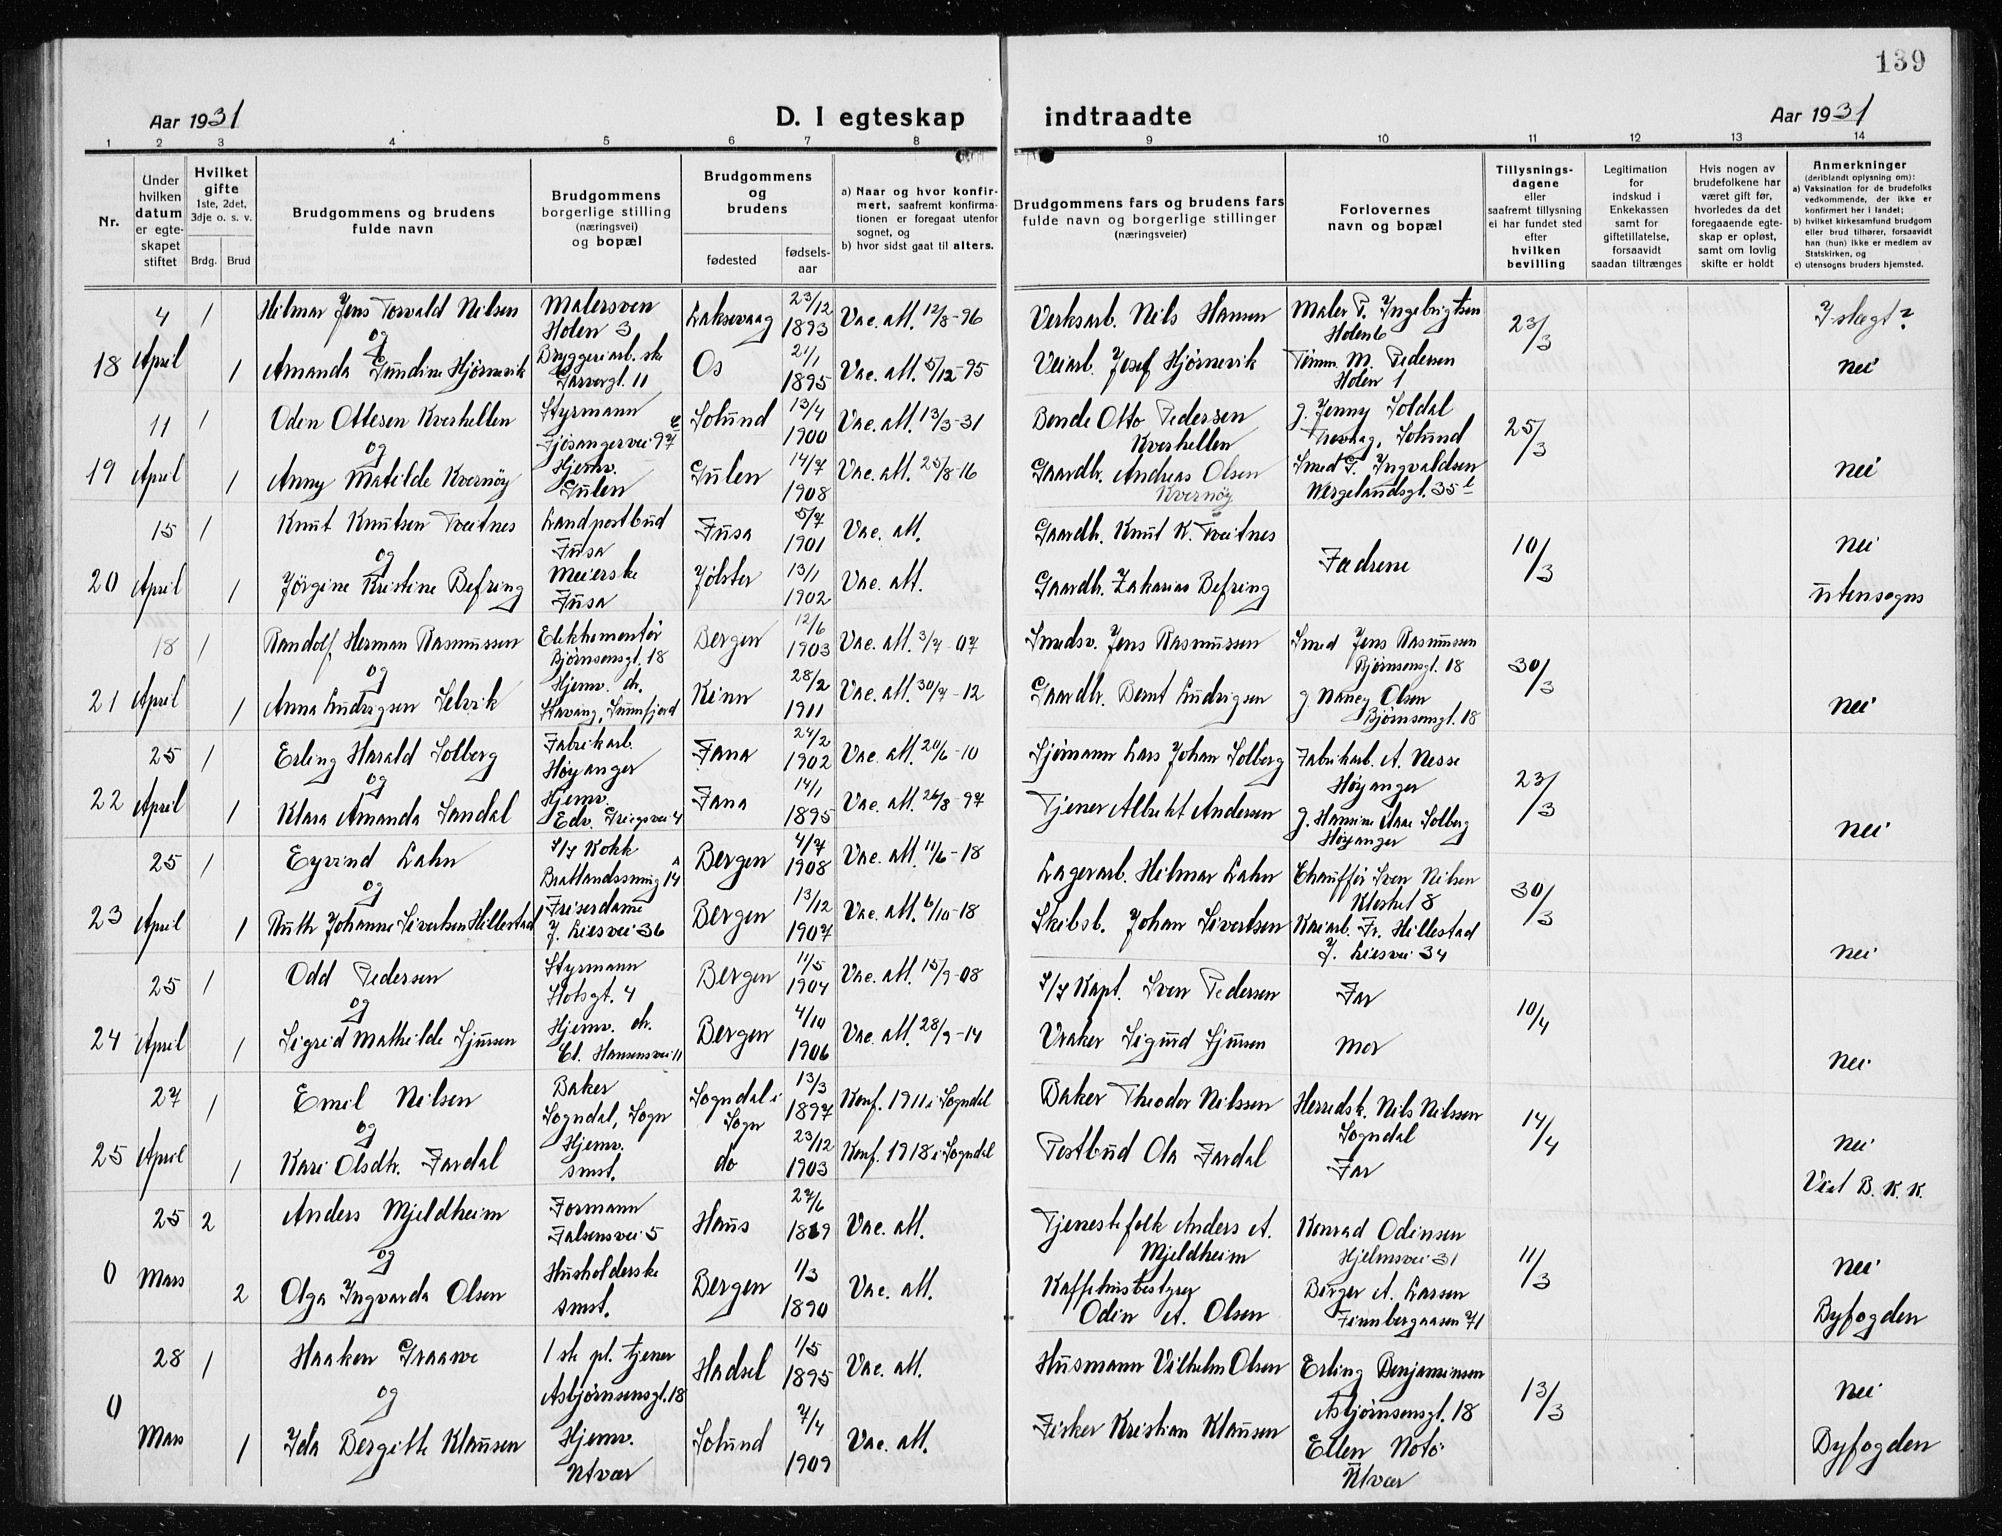 139
Aar 1931 D. I egteskap indtraadte Aar 1931
1 2 3 4 5 6 7 8 9 10 11 12 13 14
Nr.
Under hvilken datum er egteskapet stiftet
Hvilket gifte 1ste, 2det, 3dje o. s. v.
Brdg. Brud
Brudgommens og brudens fulde navn
Brudgommens borgerlige stilling (næringsvei) og bopæl
Brudgommens og brudens
fødested fødselsaar
a) Naar og hvor konfirmert, saafremt konfirmationen er foregaat utenfor sognet, og
b) hvor sidst gaat til alters.
Brudgommens fars og brudens fars fulde navn og borgerlige stillinger (næringsveier)
Forlovernes navn og bopæl
Tillysningsdagene eller saafremt tillysning ei har fundet sted efter hvilken bevilling
Legitimation for indskud i Enkekassen samt for giftetillatelse, forsaavidt saadan tiltrænges
Hvis nogen av brudefolkene har været gift før, hvorledes da det foregaaende egteskap er opløst, samt om lovlig skifte er holdt
Anmerkninger (deriblandt oplysning om):
a) Vaksination for de brudefolks vedkommende, der ikke er konfirmert her i landet;
b) hvilket kirkesamfund brudgom eller brud tilhører, forsaavidt han (hun) ikke er medlem av Statskirken, og
c) utensogns bruders hjemsted.
4 1 Hilmar Jens Torvald Nilsen Malersven Holen 3 Laksevaag 23/12 1893 Vac. att. 12/8-96 Verksarb. Nils Hansen Maler P. Ingebrigtsen Holen 6 23/3 I slegt?
og
18 April 1 Amanda Gundine Hjørnevik Bryggeriarb.ske Garvergt. 11 Os 21/1 1895 Vac. att. 5/12-95 Veiarb. Josef Hjørnevik Tømm. M. Pedersen Holen 1 nei
11 1 Odin Ottesen Kverhellen Styrmann Fjøsangervei 97 Solund 13/4 1900 Vac. att. 13/3-31 Bonde Otto Pedersen Kverhellen g. Jenny Soldal Solund 25/3
og
19 April 1 Anny Matilde Kvernöy Hjemv. Gulen Gulen 14/7 1908 Vac. att. 25/8-16 Gaardbr. Andreas Olsen Kvernöy Smed T. Ingvaldsen Wergelandsgt. 35 nei
15 1 Knut Knutsen Tveitnes Landpostbud Fusa Fusa 5/7 1901 Vac. att. Gaardb. Knut K. Tveitnes Fædrene 10/3 nei
og
20 April 1 Jörgine Kristine Befring Meierske Fusa Jölster 13/1 1902 Vac. att. Gaardb. Zakarias Befring utensogns
18 1 Randolf Herman Rasmussen Elektromontør Bjørnsensgt. 18 Bergen 12/6 1903 Vac. att. 3/7-07 Smedsv. Jens Rasmussen Smed Jens Rasmussen Bjørnsensgt. 18 30/3
og
21 April 1 Anna Ludvigsen Selvik Hjemv. dr. Stavang, Sunnfjord Kinn 28/2 1911 Vac. att. 30/7-12 Gaardbr. Bernt Ludvigsen g Nancy Olsen Bjørnsensgt. 18 nei
25 1 Erling Harald Solberg Fabrikarb. Høyanger Fana 24/2 1902 Vac. att. 20/6-10 Sjømann Lars Johan Solberg Fabrikarb. A. Nesse Høyanger 23/3
og
22 April 1 Klara Amanda Sandal Hjemv. Edv. Griegsvei 4 Fana 14/1 1895 Vac. att. 24/8-97 Tjener Albrekt Andersen g. Hansine Aase Solberg Høyanger nei
25 1 Eyvind Lahn S/S Kokk Brattlandssmug 14 A Bergen 4/7 1908 Vac. att. 11/6-18 Lagerarb. Hilmar Lahn Chauffør Sven Nilsen Klosket 8 30/3
og
23 April 1 Ruth Johanne Sivertsen Hillestad Friserdame J. Liesvei 36 Bergen 13/12 1907 Vac. att. 6/10-18 Skibsb. Johan Sivertsen Kaiarb. Fr. Hillestad J. Liesvei 34 nei
25 1 Odd Pedersen Styrmann Slotsgt. 4 Bergen 11/5 1904 Vac. att. 15/9-08 S/S Kapt. Sven Pedersen Far 10/4
og
24 April 1 Sigrid Mathilde Sjursen Hjemv. dr. Cl. Hansensvei 11 Bergen 4/10 1906 Vac. att. 28/9-14 Vraker Sigurd Sjursen Mor nei
27 1 Emil Nilsen Baker Sogndal, Sogn Sogndal i Sogn 13/3 1897 Konf. 1911 i Sogndal Baker Theodor Nilssen Herredsk. Nils Nilssen Sogndal 14/4 nei
og
25 April 1 Kari Olsdtr. Fardal Hjemv. smst. do 23/12 1903 Konf. 1918 i Sogndal Postbud Ola Fardal Far Viet B. K. K.
25 2 Anders Mjeldheim Formann Falsensvei 5 Haus 27/6 1869 Vac. att. Tjenestefolk Anders A. Mjeldheim Konrad Odinsen Hjelmsvei 31 11/3 nei
og
0 Mars 2 Olga Ingvarda Olsen Husholderske smst. Bergen 1/3 1890 Vac. att. Kaffehusbestyrer Odin A. Olsen Birger A. Larsen Finnbergaasen 71 Byfogden
28 1 Haaken Graawe 1 ste pl. tjener Asbjørnsensgt. 18 Hadsel 1/5 1895 Vac. att. Husmann Vilhelm Olsen Erling Benjaminsen Asbjørnsensgt. 18 13/3 nei
og
0 Mars 1 Ida Bergitte Klausen Hjemv. Utvær Solund 7/4 1909 Vac. att. Fisker Kristian Klausen Ellen Notö Utvær Byfogden